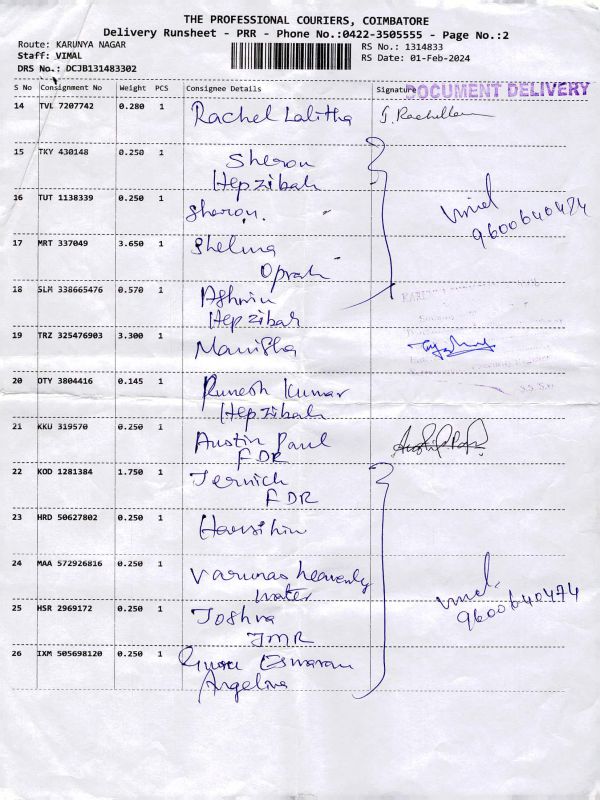 THE PROFESSIONAL COURIERS, COIMBATORE
Delivery Runsheet - PRR - Phone No.:0422-3505555 - Page No.:2
Route: KARUNYA NAGAR RS No.: 1314833
Staff: VIMAL RS Date: 01-Feb-2024
DRS No.: DCJB131483302
S No Consignment No Weight PCS Consignee Details Signature DOCUMENT DELIVERY
14 TVL 7207742 0.280 1 Rachel Lalitha
15 TKY 430148 0.250 1 Sheron
Hepzibah
16 TUT 1138339 0.250 1 Sharon.
17 MRT 337049 3.650 1 Shelma
Oprah
vimel
9600640474
18 SLM 338665476 0.570 1 Ashwin
Hepzibah
19 TRZ 325476903 3.300 1 Manisha
20 OTY 3804416 0.145 1 Runesh Kumar
Hepzibah
21 KKU 319570 0.250 1 Austin Paul
FDR
22 KOD 1281384 1.750 1 Jernich
FDR
23 HRD 50627802 0.250 1
24 MAA 572926816 0.250 1 Varunas heavenly
water
vimel.
9600640474
25 HSR 2969172 0.250 1 Joshva
JMR
26 IXM 505698120 0.250 1 Guru Eswaran
Angelina